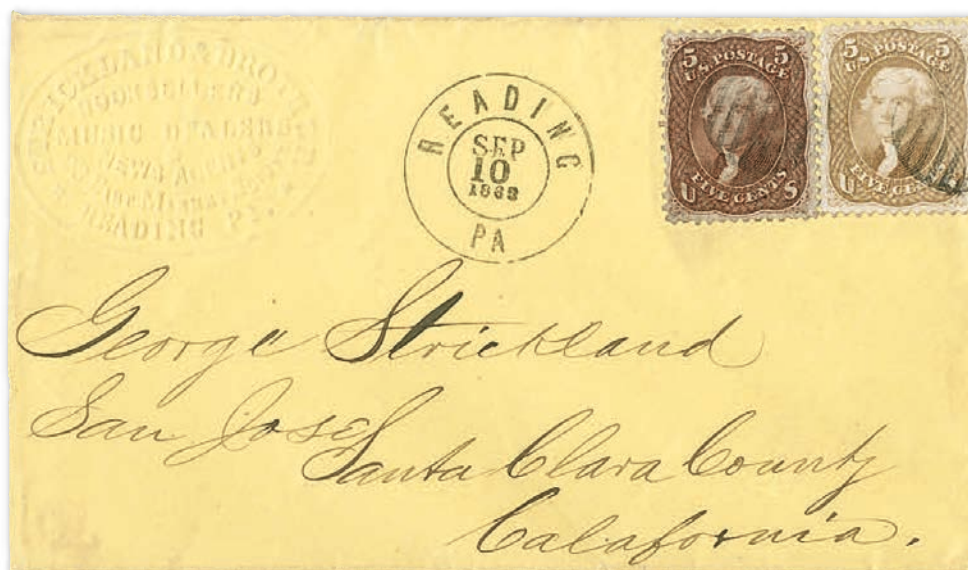 BOOKSELLERS
MUSIC DEALERS
NEWS AGENTS
READING PA.
READING
SEP
10
PA
5 5
U.S. POSTAGE
U S
FIVE CENTS
5 5
U.S. POSTAGE
U
FIVE CENTS
George Strickland
San Jose
Santa Clara County
Calafornia.